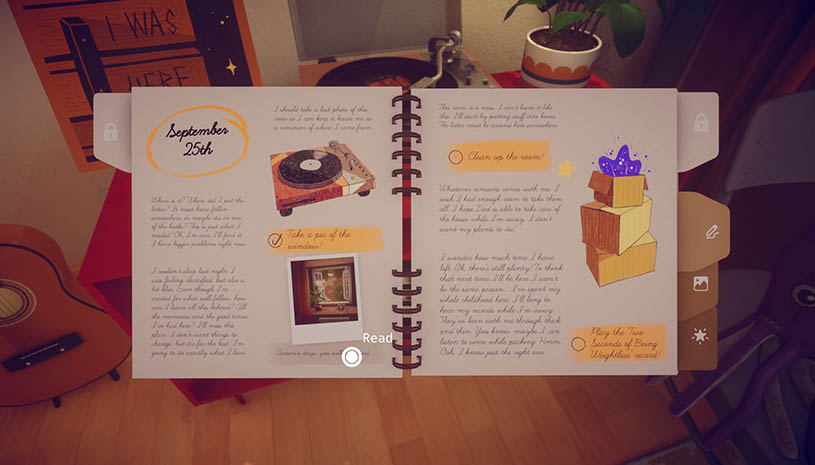 I WAS
HERE
September
25th
Where is it? Where did I put the
letter? It must have fallen
somewhere, or maybe it's in one
of the books? This is just what I
needed! Oh, I'm sure I'll find it.
I have bigger problems right now.
I couldn't sleep last night. I
was feeling electrified, but also a
bit blue. Even though I'm
excited for what will follow, how
can I leave all this behind? All
the memories and the good times
I've had here? I'll miss this
place. I don't want things to
change, but it's for the best. I'm
going to do exactly what I love.
I should take a last photo of this
view so I can keep it beside me as
a reminder of where I come from.
Take a pic of the
window!
Autumn days, you
Read
This room is a mess. I can't leave it like
this. I'll start by putting stuff into boxes.
The letter must be around here somewhere.
Clean up the room!
Whatever remains comes with me. I
wish I had enough room to take them
all. I hope Dad is able to take care of
the house while I'm away. I don't
want my plants to die!
I wonder how much time I have
left. Oh, there's still plenty! To think
that next time I'll be here I won't
be the same person. I've spent my
whole childhood here. I'll long to
hear my records while I'm away.
They've been with me through thick
and thin. You know, maybe I can
listen to some while packing. Hmm...
Ooh, I know just the right one.
Play the Two
Seconds of Being
Weightless record!